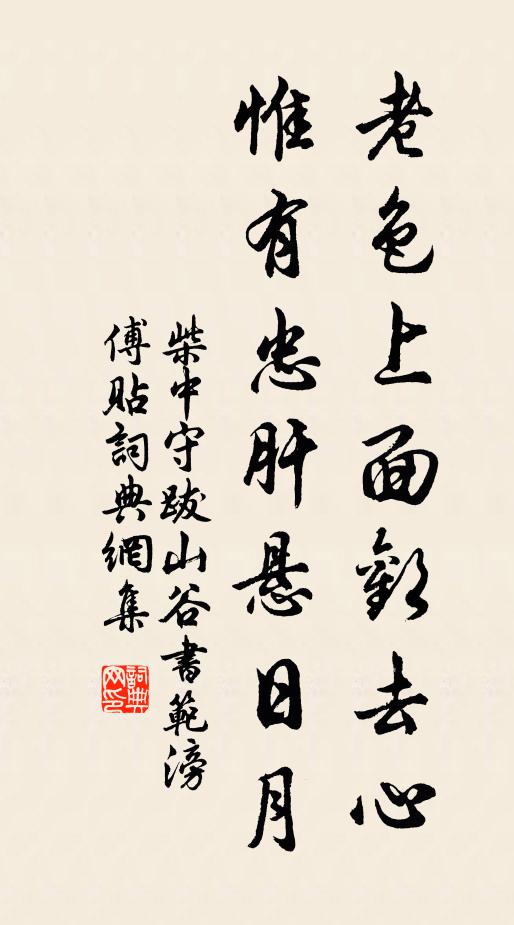 老色上面歡去心
惟有忠肝悬日月
柴中守跋山谷書範滂
傅貼詞典網集
詞典
网印